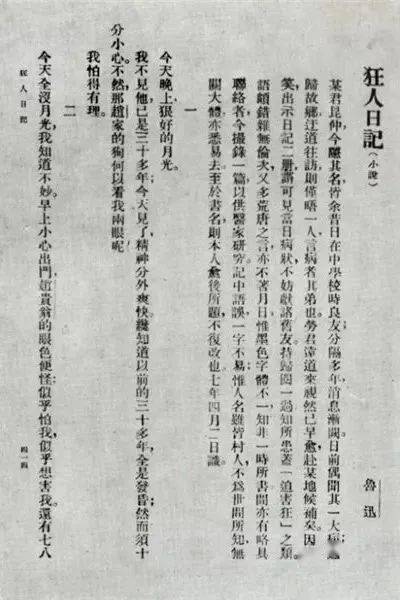 狂人日記(小說)
魯迅
某君昆仲，今隱其名，皆余昔日在中學校時良友；分隔多年，消息漸闕。日前偶聞其一大病；適
歸故鄉，迂道往訪，則僅晤一人，言病者其弟也。勞君遠道來視，然已早愈，赴某地候補矣。因大
笑，出示日記二冊，謂可見當日病狀，不妨獻諸舊友。持歸閱一過，知所患蓋「迫害狂」之類。
語頗錯雜無倫次，又多荒唐之言；亦不著月日，惟墨色字體不一，知非一時所書。間亦有略具
聯絡者，今撮錄一篇，以供醫家研究。記中語誤，一字不易；惟人名雖皆村人，不為世間所知，無
關大體，亦悉易去。至於書名，則本人愈後所題，不復改也。七年四月二日識。
一
今天晚上，狠好的月光。
我不見他，已是三十多年；今天見了，精神分外爽快。纔知道以前的三十多年，全是發昏；然而須十
分小心。不然，那趙家的狗，何以看我兩眼呢？
我怕得有理。
二
今天全沒月光，我知道不妙。早上小心出門，趙貴翁的眼色便怪：似乎怕我，似乎想害我。還有七八
狂人日記
四一四